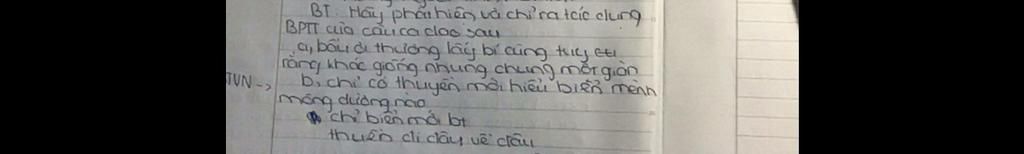 BT. Hãy phát hiện và chỉ ra tác dụng
BPTT của câu ca dao sau
a, bầu ơi thương lấy bí cùng tuy
rằng khác giống nhưng chung một giàn
TVN -> b, chỉ có thuyền mới hiểu biển mênh
mông dường nào
chỉ biển mới bt
thuền đi đâu về đâu